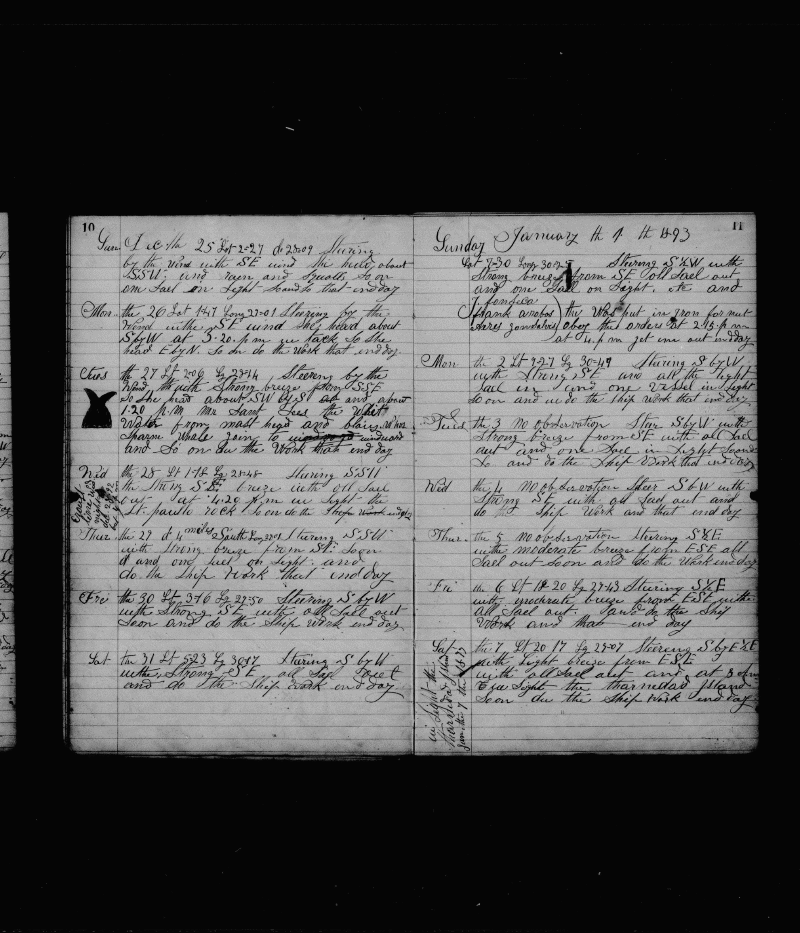 10
Sun Dec th 25 Lat 2-27 Lo 28-09 Stering
by the wind with SE wind the head about
SSW and rain and squals so on
on Sail on Sight so ends that end day
Mon the 26 Lat 1-47 Long 29-01 Steering by the
Wind withe SE wind Ship head about
S by W at 3-20 p.m we tack So She
head E by N. So on do the Work that end day
Tues the 27 Lt 2-06 Lg 29-14 Steering by the
Wind with Strong breeze from SSE
So She head about SW by S and about
1-20 P.M Mr Sant Sees the White
Water from mast head and
Sparm Whale goin to windward
and So on du the Work that end day
Wed the 28 Lt 1-18 Lg 28-48 Steering SSW
the Strong SE breeze with all Sail
out at 4-20 P.m in Sight the
St. paulse rock Soon do the Ship Work end day
Thur the 29 at 4 miles South Long Steering SSW
with Strong breeze from SE Soon
and one Sail on Sight and
do the Ship Work that end day
Fri the 30 Lt 3-16 Lg 29-50 Steering S by W
with Strong SE with all Sail out
Soon and do the Ship Work end day
Sat the 31 Lt 5-23 Lg 30-17 Stering S by W
withe Strong SE all Sail out
and do the Ship Work end day
11
Sunday January th 1 th 1893
Lat 7-30 Long 30-2 Steering S½W with
Strong breeze from SE all Sael out
and on Sail on Sight. and
J. fonseca
Frank arobos
Aires gonsalves
they Was put in iron for nut
obey the orders at 2-15 p.m
at 4 p.m get em out end day
Mon the 2 Lt 9-27 Lg 30-49 Stering S by W
with Strong SE and all the light
Sail in and one Vessel in Sight
So on and we do the Ship Work that end day
Tues the 3 no observation Star S by W with
Strong breeze from SE with all Sael
out and one Sael in Sight Soon
So and do the Ship Work that end day
Wed the 4 no observation Steer S by W with
Strong SE with all Sael out and
do the Ship Work and that end day
Thur the 5 no observation Stering S½E
withe moderate breeze from ESE all
Sael out Soon and do the Work end day
Fri the 6 Lt 18-20 Lg 29-43 Stering S½E
with moderate breeze from ESE with
all Sael out and do the Ship
Work and that end day
Sat the 7 Lt 20-17 Lg 29-07 Steering S by E½E
with Light breeze from ESE
with all Sael out and at 3 p.m
we Sight the tharnedad Island
Soon du the Ship Work end day
in Sight the
tharnedad Island
Jan. the 7 th 1893